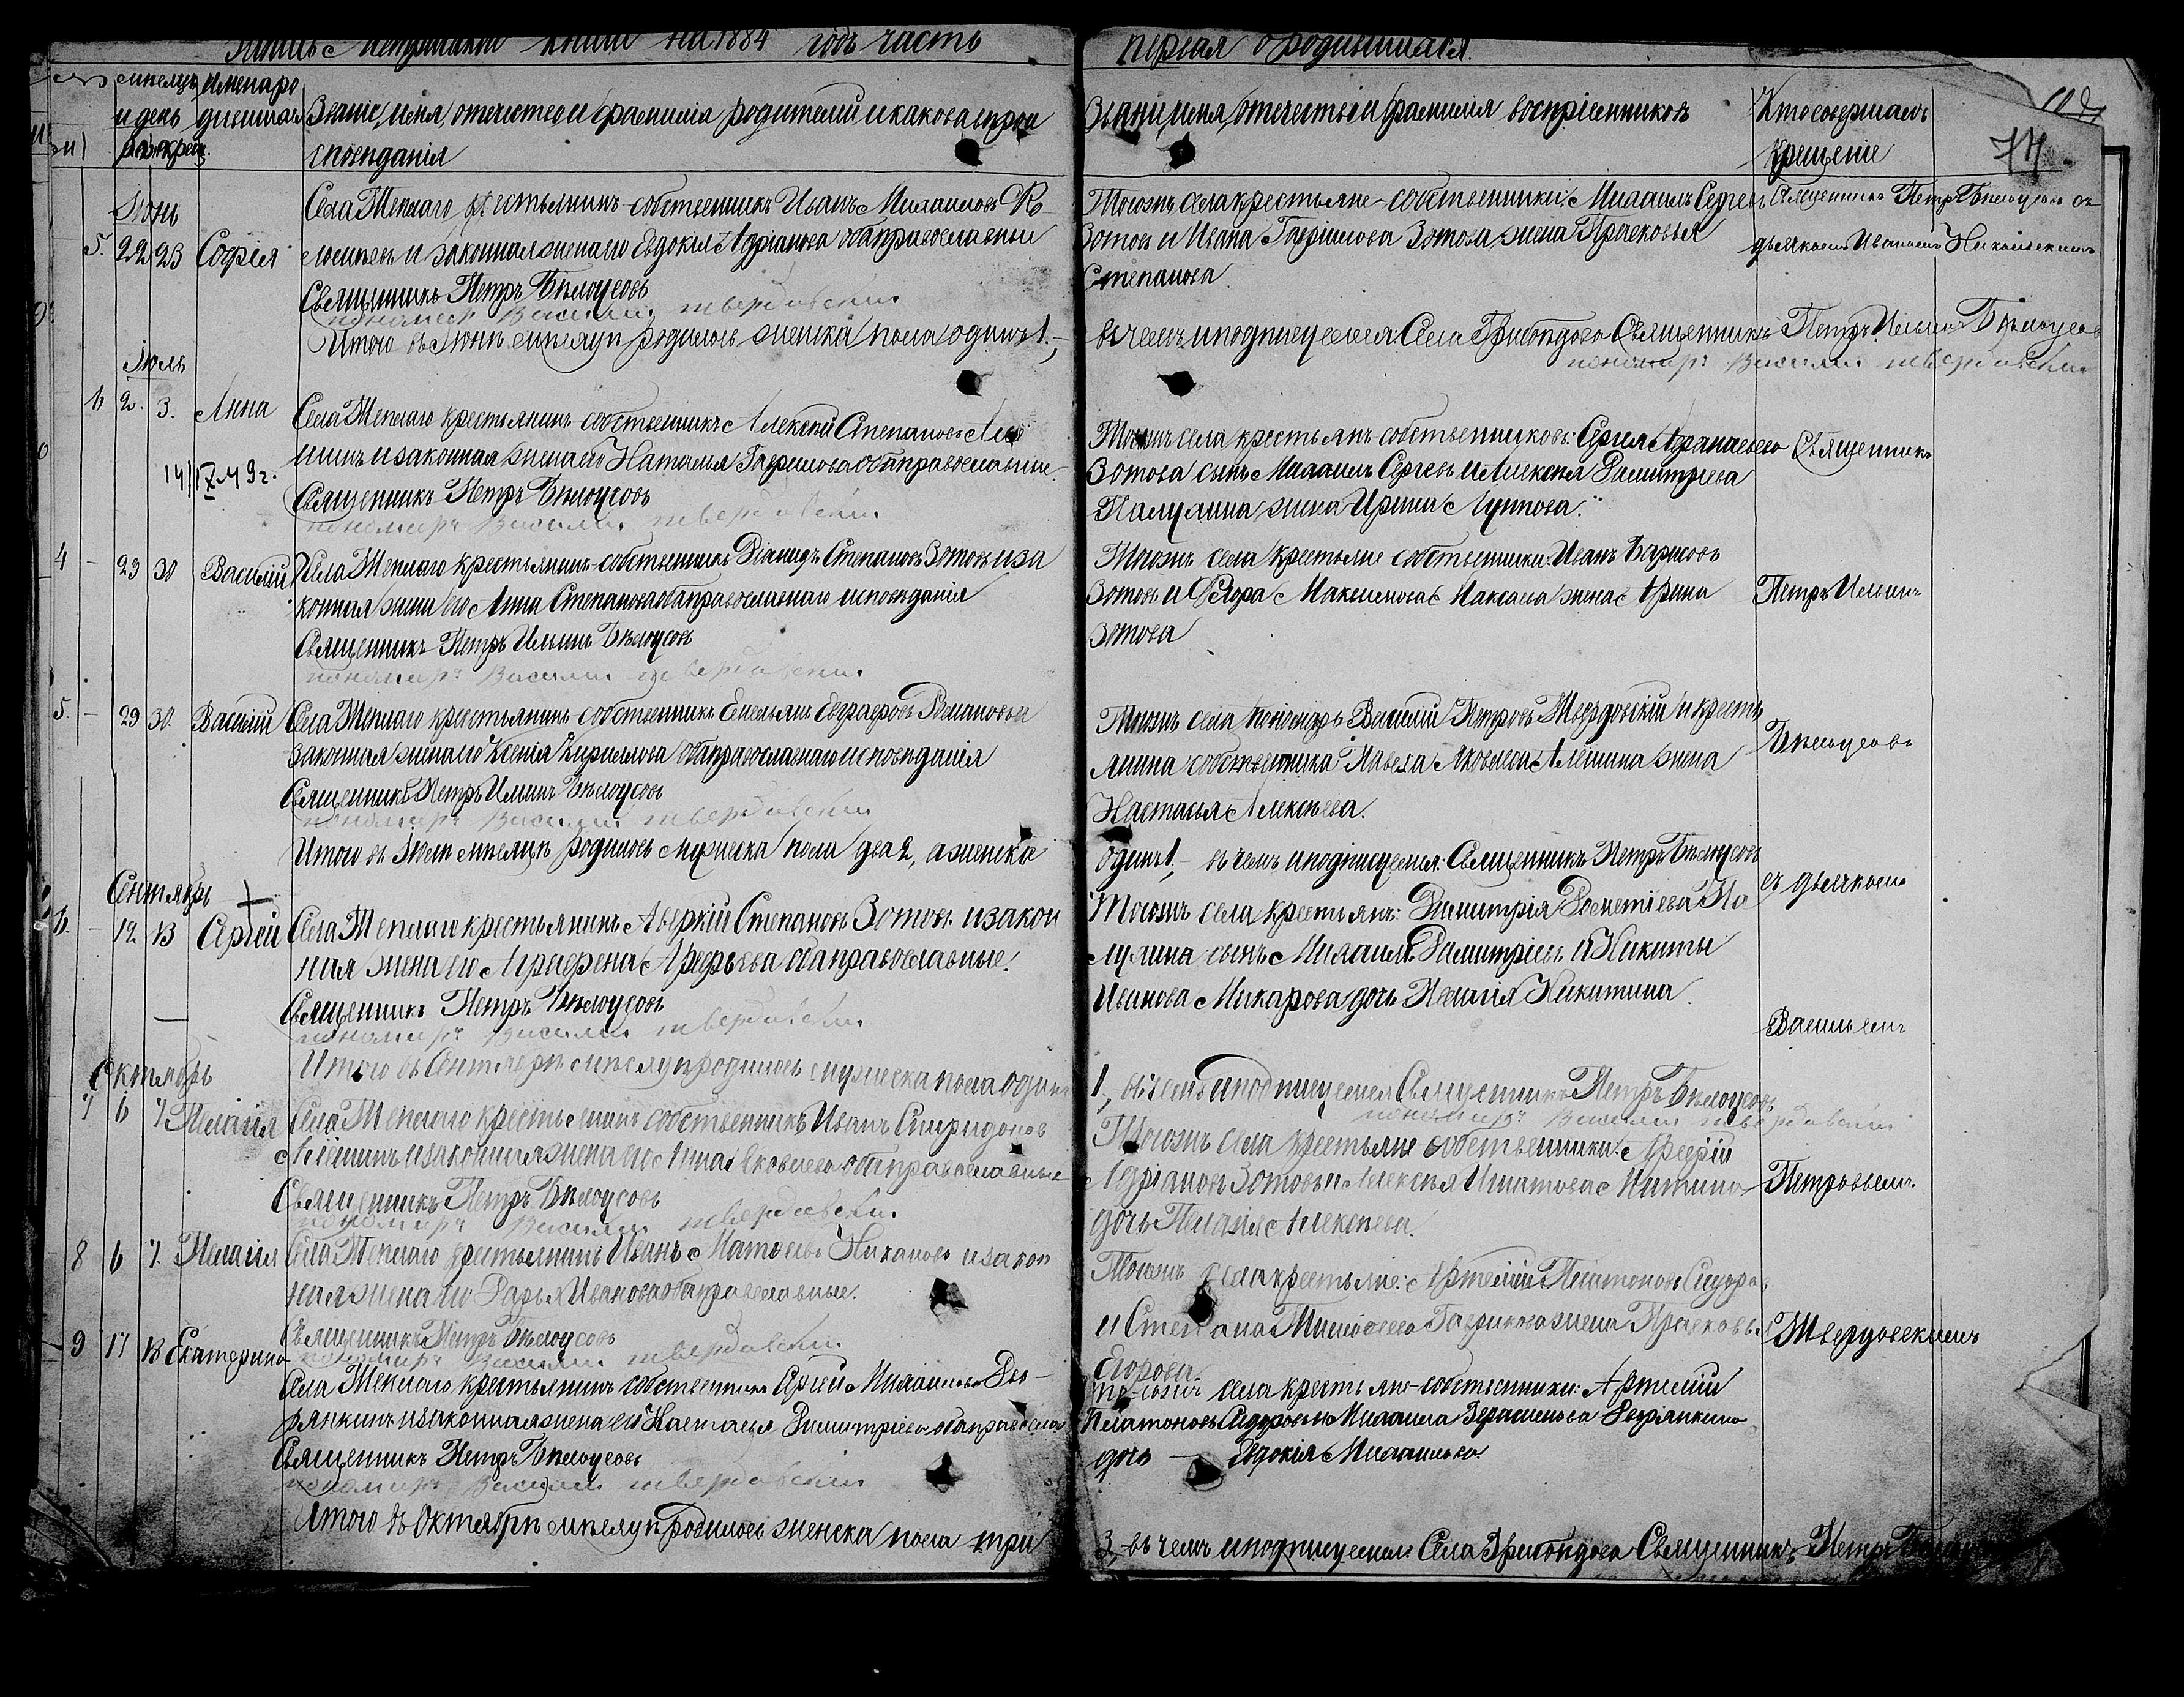 Запись метрической книги на 1884 годъ часть первая о родившихся.
мѣсяцъ имена ро
и день дившихся Званіе, имя, отчество и фамилія родителей и какова вѣрои
рож крещ. споведанія
Званіе, имя, отчество и фамилія воспріемниковъ
Кто совершалъ
крещеніе
74
Іюнь
5. 22 23 Софія
Села Теплаго крестьянинъ-собственникъ Иванъ Михаиловъ
и законная жена его Евдокія Адріанова оба православные
Священникъ Петръ Бѣлоусовъ
пономарь Василий твердовский
Итого въ Іюнѣ мѣсяцѣ родилось женска пола одинъ 1.,-
Тогожъ села крестьяне-собственники: Михаилъ Сергеевъ
Зотовъ и Ивана Гаврилова Зотова жена Прасковья
Степанова.
Священникъ Петръ Бѣлоусовъ съ
дьячкомъ Иваномъ Никольскимъ
въ чемъ и подписуемся: Села Священникъ Петръ Ильинъ Бѣлоусовъ
пономарь Василий твердовский
Іюль
6 2. 3. Анна
14/IX-49г.
Села Теплаго крестьянинъ собственникъ Алексѣй Степановъ Але
шинъ и законная жена его Наталья Гаврилова оба православные.
Священникъ Петръ Бѣлоусовъ
пономарь Василий твердовский
Тогожъ села крестьянъ собственниковъ: Сергія Афанасьева
Зотова сынъ Михаилъ Сергеевъ и Алексѣя Димитріева
Пакулина жена Ирина Луппова.
Священникъ
4 - 29 30 Василій
Села Теплаго крестьянинъ-собственникъ Степановъ Зотовъ и за
конная жена его Анна Степанова оба православнаго исповѣданія
Священникъ Петръ Ильинъ Бѣлоусовъ
пономарь Василий твердовский
Тогожъ села крестьяне собственники: Иванъ
Зотовъ и Ѳедора Максимова жена Арина
Зотова
Петръ Ильинъ
5. - 29 30. Василій
Села Теплаго крестьянинъ собственникъ Емельянъ Евграфовъ и
законная жена его Ксенія Кириллова оба православнаго исповѣданія
Священникъ Петръ Ильинъ Бѣлоусовъ
пономарь Василий твердовский
Итого въ Іюлѣ мѣсяцѣ родилось мужска пола два 2, а женска
Тогожъ села пономарь Василій Петровъ Твердовскій и кресть
янина собственника Павела Яковлева Алешина жена
Настасья Алексѣева.
Бѣлоусовъ
одинъ 1,- въ чемъ и подписуемся: Священникъ Петръ Бѣлоусовъ
Сентябрь
6. - 12 13 Сергій
Села Теплаго крестьянинъ Аверкій Степановъ Зотовъ и закон
ная жена его Аграфена Арефьева оба православные.
Священникъ Петръ Бѣлоусовъ
пономарь Василий твердовский
Тогожъ села крестьянъ: Димитрія Па
кулина сынъ Михаилъ Димитріевъ и Никиты
Иванова Макарова дочь Пелагія Никитина.
съ дьячкомъ
Васильемъ
Итого въ Сентябрѣ мѣсяцѣ родилось мужеска пола одинъ
1, въ чемъ и подписуемся Священникъ Петръ Бѣлоусовъ
пономарь Василий твердовский
Октябрь
7 6 7 Пелагія
Села Теплаго крестьянинъ собственникъ Иванъ Спиридоновъ
Алешинъ и законная жена его Анна Яковлева оба православные
Священникъ Петръ Бѣлоусовъ
пономарь Василий твердовский
Тогожъ села крестьяне собственники: Арефій
Адріановъ Зотовъ и Алексѣя Игнатова Никитина
дочь Пелагія Алексѣева.
Петровымъ
8 6 7. Пелагія
Села Теплаго крестьянинъ Иванъ Матвѣевъ и закон
ная жена его Дарья Иванова оба православные.
Священникъ Петръ Бѣлоусовъ
пономарь Василий твердовский
Тогожъ села крестьяне: Артемій Платоновъ Сидоровъ
и Степана Тимофеева Гаврикова жена Прасковья
Егорова.
Твердовскимъ
9 17 18 Екатерина
Села Теплаго крестьянинъ собственникъ Сергій Михаиловъ
и законная жена его Настасья Димитріева оба православные
Священникъ Петръ Бѣлоусовъ
пономарь Василий твердовский
Тогожъ села крестьяне-собственники: Артемій
Платоновъ Сидоровъ и Михаила Герасимова
дочь — Евдокія Михаилова.
Итого въ Октябрѣ мѣсяцѣ родилось женска пола три
3,-въ чемъ и подписуемся: Села Священникъ Петръ